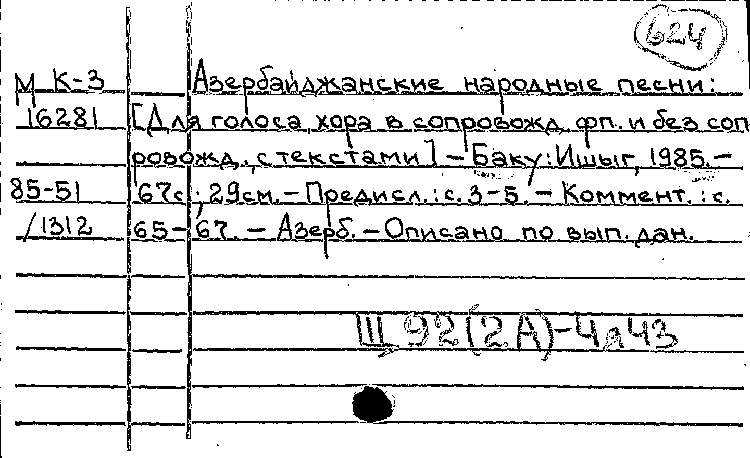 624
М К-3 Азербайджанские народные песни:
16281 [Для голоса, хора в сопровожд. фп. и без соп
ровожд., с текстами] – Баку: Ишыг, 1985. –
85-51 67с.; 29см. – Предисл.: с. 3-5. – Коммент.: с.
/1312 65-67. – Азерб. – Описано по вып. дан.
Щ 92(2А)-4я43